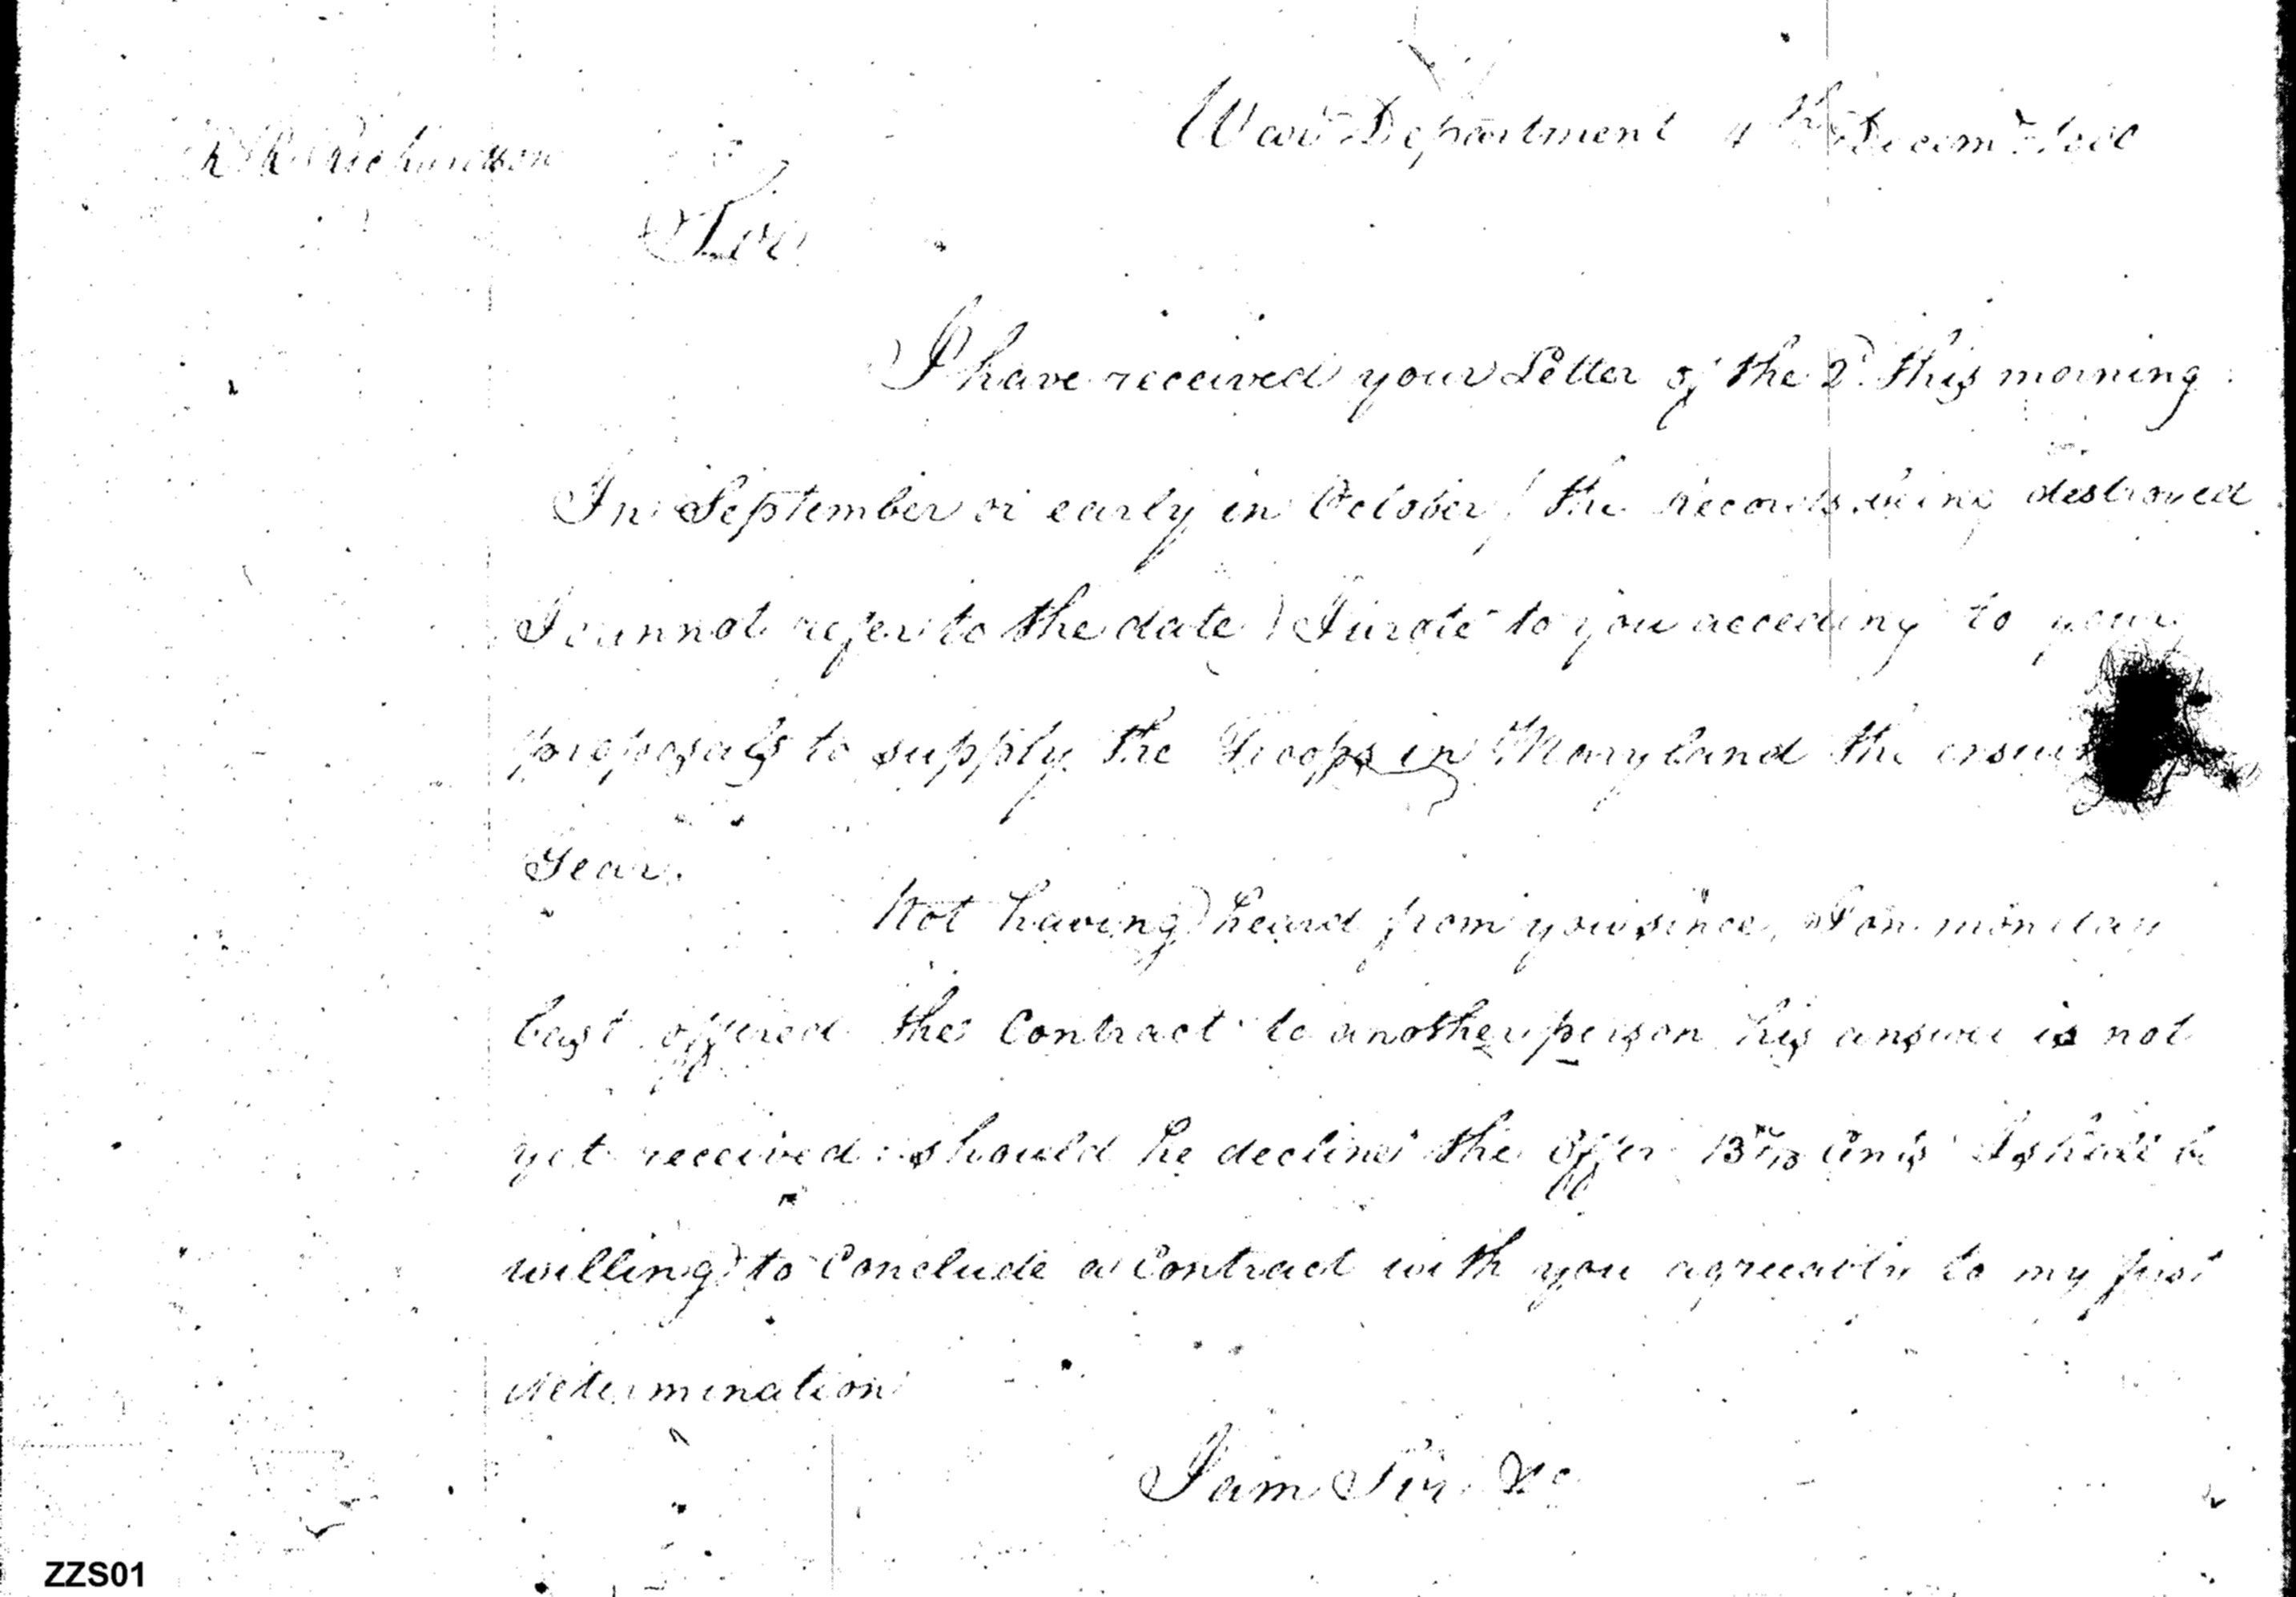 War Department 4th Decemr 1800
Richardson
Sir
I have received your Letter of the 2d. this morning
In September or early in October (the records being destroyed
I cannot refer to the date) I wrote to you acceeding to your
proposals to supply the Troops in Maryland the
Year.
Not having heard from you since, I on monday
last offered the Contract to another person his answer is not
yet received: should he decline the offer 13 Cents I shall be
willing to Conclude a Contract with you agreeable to my first
determination
I am Sir &c
ZZS01